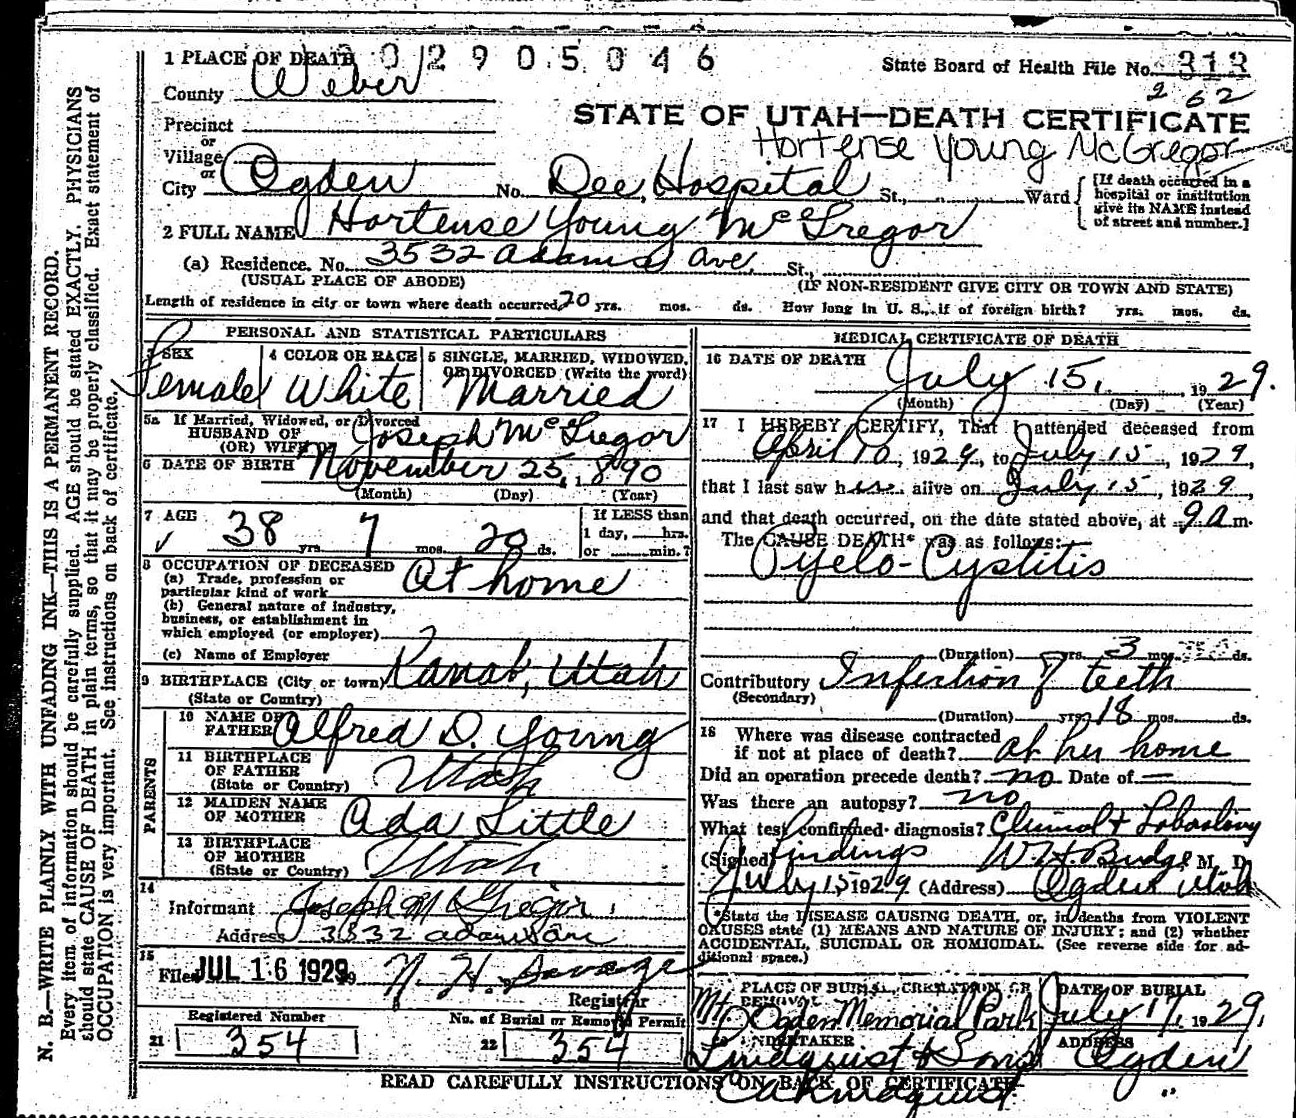 1 PLACE OF DEATH 0 2 9 0 5 0 4 6
State Board of Health File No. 313
262
County Weber
STATE OF UTAH—DEATH CERTIFICATE
Precinct
Hortense Young McGregor
or
Village
or
City Ogden No. Dee Hospital St., Ward
[If death occurred in a hospital or institution give its NAME instead of street and number.]
2 FULL NAME Hortense Young McGregor
(a) Residence. No. 3532 Adams Ave. St.,
(USUAL PLACE OF ABODE) (IF NON-RESIDENT GIVE CITY OR TOWN AND STATE)
Length of residence in city or town where death occurred 20 yrs. mos. ds. How long in U. S., if of foreign birth? yrs. mos. ds.
PERSONAL AND STATISTICAL PARTICULARS
3 SEX Female
4 COLOR OR RACE White
5 SINGLE, MARRIED, WIDOWED, OR DIVORCED (Write the word) Married
5a If Married, Widowed, or Divorced
HUSBAND OF
(OR) WIFE Joseph McGregor
6 DATE OF BIRTH November 25, 1890
(Month) (Day) (Year)
7 AGE 38 yrs 7 mos. 20 ds.
If LESS than
1 day, hrs.
or min.?
8 OCCUPATION OF DECEASED
(a) Trade, profession or
particular kind of work At home
(b) General nature of industry,
business, or establishment in
which employed (or employer)
(c) Name of Employer
9 BIRTHPLACE (City or town) Kanab, Utah
(State or Country)
PARENTS
10 NAME OF
FATHER Alfred D. Young
11 BIRTHPLACE
OF FATHER Utah
(State or Country)
12 MAIDEN NAME
OF MOTHER Ada Little
13 BIRTHPLACE
OF MOTHER Utah
(State or Country)
14
Informant Joseph McGregor
Address 3532 Adams Ave
15
Filed JUL 16 1929 N. H. Savage
Registrar
Registered Number
21 354
No. of Burial or Removal Permit
22 354
MEDICAL CERTIFICATE OF DEATH
16 DATE OF DEATH July 15, 1929.
(Month) (Day) (Year)
17 I HEREBY CERTIFY, That I attended deceased from
April 10, 1929, to July 15, 1929,
that I last saw her alive on July 15, 1929,
and that death occurred, on the date stated above, at 9 a m.
The CAUSE DEATH* was as follows:
Pyelo-Cystitis
(Duration) yrs. 3 mos. ds.
Contributory Infection of teeth
(Secondary)
(Duration) yrs 18 mos. ds.
18 Where was disease contracted
if not at place of death? at her home
Did an operation precede death? no Date of —
Was there an autopsy? no
What test confirmed diagnosis? Clinical & Laboratory
(Signed) findings W. H. Budge M. D.
July 15 1929 (Address) Ogden Utah
*State the DISEASE CAUSING DEATH, or, in deaths from VIOLENT
CAUSES state (1) MEANS AND NATURE OF INJURY; and (2) whether
ACCIDENTAL, SUICIDAL OR HOMICIDAL. (See reverse side for additional space.)
PLACE OF BURIAL, CREMATION OR REMOVAL
Mt. Ogden Memorial Park
DATE OF BURIAL
July 17, 1929.
UNDERTAKER
Lindquist & Sons
ADDRESS
Ogden
READ CAREFULLY INSTRUCTIONS ON BACK OF CERTIFICATE
N. B.—WRITE PLAINLY WITH UNFADING INK—THIS IS A PERMANENT RECORD.
Every item of information should be carefully supplied. AGE should be stated EXACTLY. PHYSICIANS
should state CAUSE OF DEATH in plain terms, so that it may be properly classified. Exact statement of
OCCUPATION is very important. See instructions on back of certificate.